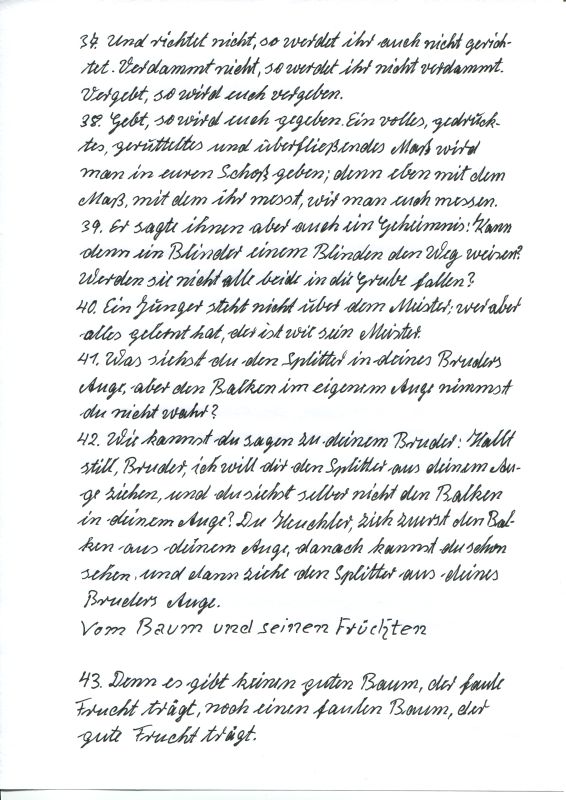 37. Und richtet nicht, so werdet ihr auch nicht gerich-
tet. Verdammt nicht, so werdet ihr nicht verdammt.
Vergebt, so wird euch vergeben.
38. Gebt, so wird euch gegeben. Ein volles, gedrück-
tes, gerütteltes und überfließendes Maß wird
man in euren Schoß geben; denn eben mit dem
Maß, mit dem ihr messt, wir man euch messen.
39. Er sagte ihnen aber auch ein Geheimnis: Kann
denn ein Blinder einem Blinden den Weg weisen?
Werden sie nicht alle beide in die Grube fallen?
40. Ein Jünger steht nicht über dem Meister; wer aber
alles gelernt hat, der ist wie sein Meister.
41. Was siehst du den Splitter in deines Bruders
Auge, aber den Balken im eigenem Auge nimmst
du nicht wahr?
42. Wie kannst du sagen zu deinem Bruder: Hallt
still, Bruder, ich will dir den Splitter aus deinem Au-
ge ziehen, und du siehst selber nicht den Balken
in deinem Auge? Du Heuchler, zieh zuerst den Bal-
ken aus deinem Auge, danach kannst du schon
sehen, und dann ziehe den Splitter aus deines
Bruders Auge.
Vom Baum und seinen Früchten
43. Denn es gibt keinen guten Baum, der faule
Frucht trägt, noch einen faulen Baum, der
gute Frucht trägt.